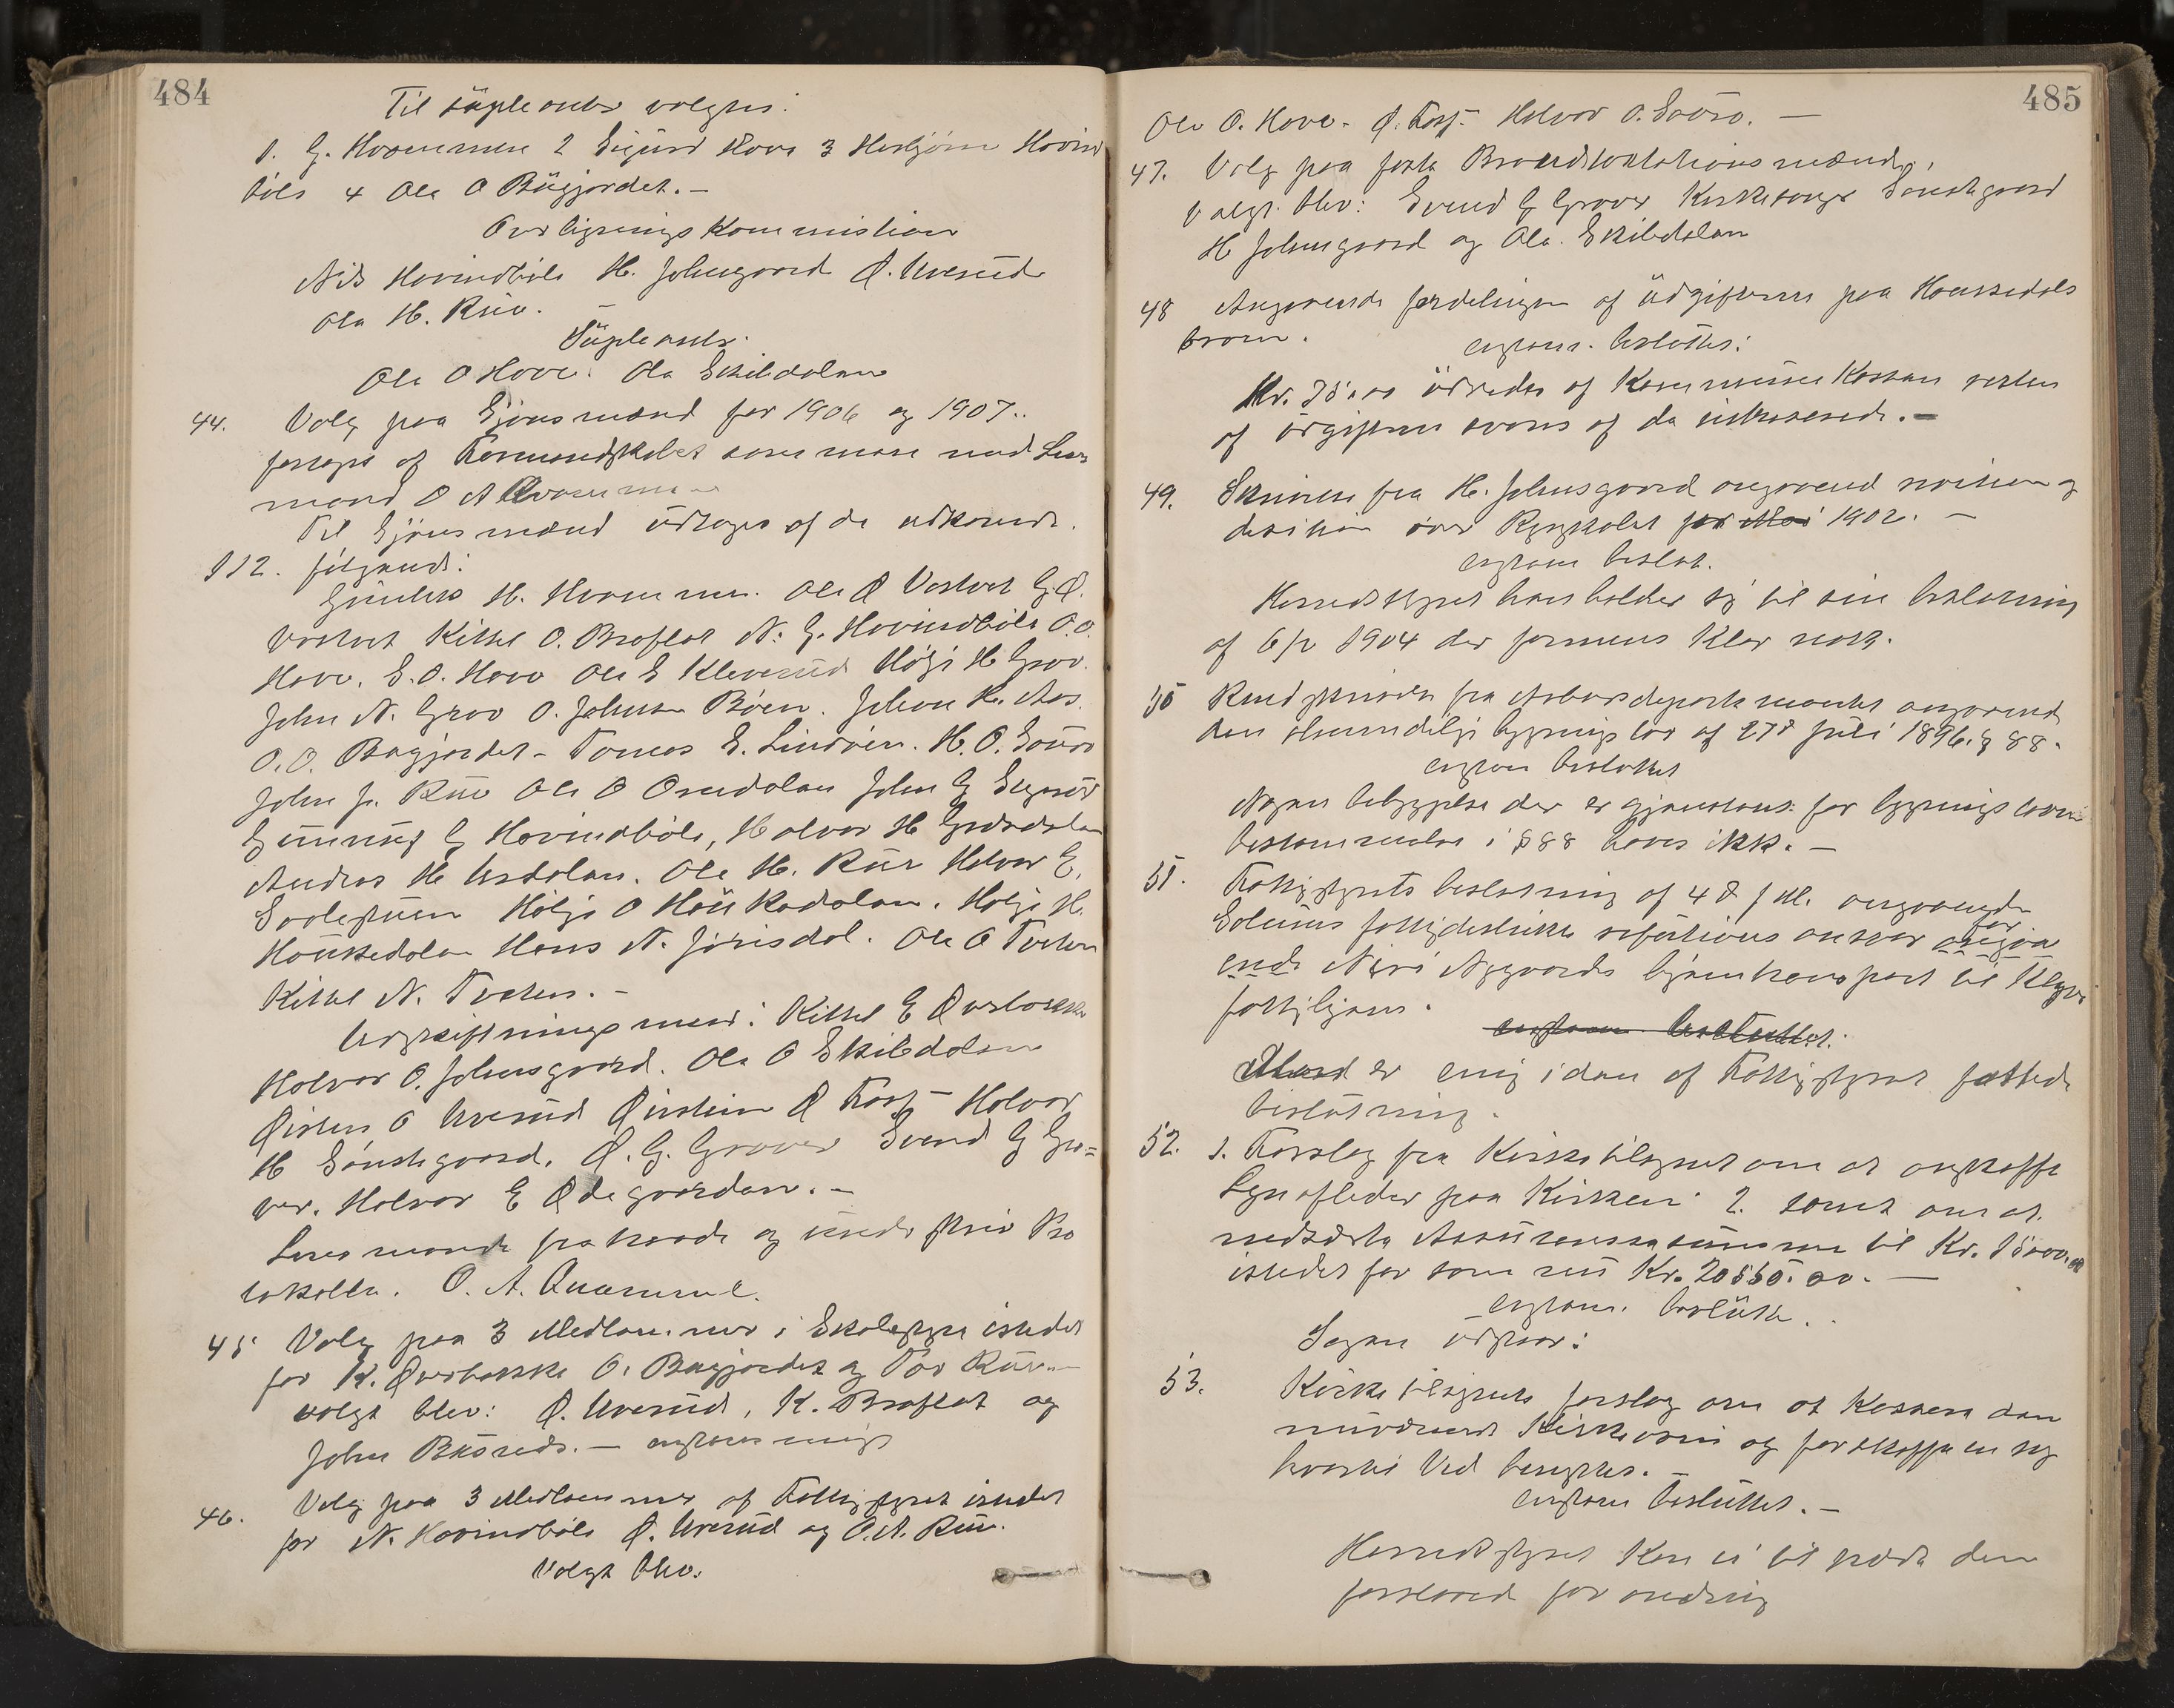 484
Til süpleanter valgtes:
1. G. Hvammen 2 Sigurd Hove 3 Herbjørn Hovind
bøle 4 Ole O Bågjordet. —
Overligningskommistion
Nils Hovindbøle H. Johnsgaard Ø. Uverud
Ola H. Rue. —
Süpleanter.
Ole O Hove. Ola Skibdalen
44. Valg paa Skjønsmænd for 1906 og 1907.
foretages af Formandskabet sammen med Lens
mand O A Kvamme
Til Skjønsmænd udtoges af de udkaarede
112. følgende:
Gunleik H. Hvammen. Ole Ø Vostvet G. Ø.
Vostvet Kittel O. Broflat N. G. Hovindbøle O. O.
Hove. S. O. Hove Ole S Kleverud Helje H Grov.
John N. Grov O. Johnsen Bøen. Johan K. Aas.
O. O. Bagjordet - Tomas E. Lindvien. H. O. Sauro
John J. Rue Ole O Omdalen John G
Gunnulf G Hovindbøle, Halvor H
Andres H Usdalen. Ole H. Rue Halvor E.
Helje O Haukadalen. Helje H.
Haukedalen Hans N. Jørisdal. Ole O Tveten
Kittel N. Tveten. —
Udskiftningsmænd: Kittel E Øverbakke
Halvor O. Johnsgaard. Ole O Skibdalen
Øisten O Uverud Øistein Ø Torf — Halvor
H Sønstegaard. Ø. G. Graver Svend G Gra=
ver. Halvor E Ødegaarden. —
Lensmande fratraade og underskriv Pro
tokollen. O. A. Quamme.
45 Valg paa 3 Medlemmer i Skolestyre istedet
for K. Øverbakke O. Bagjordet og Tor Rue —
valgt blev: Ø. Uverud, K. Broflat og
John Bøsreds. — enstemmigt
46. Valg paa 3 Medlemmer af Fattigstyret istedet
for N. Hovindbøle Ø. Uverud og O. A. Rue.
Valgt blev:
485
Ole O. Hove. Ø. Torf. Halvor O. Sauro. —
47. Valg paa faste Brandtaxtationsmænd.
Valgt. blev: Svend G Graver Kirkesanger Sønstegaard
H Johnsgaard og Ole. Skibdalen
48 Angaaende fordelingen af Udgifterne paa Haukedals
broen. enstem. besluttes:
Kr. 75.00 udredes af Kommunekassen resten
af udgiftene svares af de interesserede. —
49. Skrivelse fra H. Johnsgaard angaaend revision og
desition over Regnskabet for Aaret 1902. —
enstem beslut.
Herredstyret henholder sig til sin beslutning
af 6/2 1904 der formenes klar nok.
50 Rundskrivelse fra Arbeidsdepartementet angaaend
den almindelige bygningslov af 27d Juli 1896. § 88.
enstem besluttet
Nogen bebyggelse der er gjenstand for bygningslovens
bestemmelse i § 88 haves ikke. —
51. Fattigstyrets beslutning af 4d f M. angaaende
Solums fattigdistrikts refutions ansvar for angaa
ende Nyri Nygaards hjemtransport til
fattighjem.
enstem besluttet.
Mand er enig i den af Fattigstyret fattede
beslutning.
52. 1. Forslag fra Kirketilsynet om at anskaffe
Lynafleder paa Kirken. 2. samt om at.
nedsætte Assurancesummen til Kr. 15000.00
istedet for som nu Kr. 20550.00. —
enstem. beslutte.
Sagen udstaar:
53. Kirketilsynets forslag om at Kassere den
nuværende Kirkeovn og foranskaffe en ny
hvortil Ved benyttes. —
enstem besluttet. —
Herredstyret Kan ei tiltræde den
foreslaaed forandring